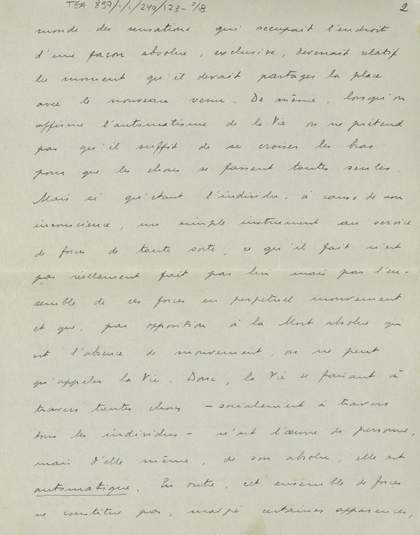 TEA 857/1/1/249/123-2/8
2
monde des sensations qui occupait l'endroit
d'une façon absolue, exclusive, devenait relatif
du moment qu'il devait partager la place
avec le nouveau venu. De même, lorsqu'on
affirme l'automatisme de la Vie on ne prétend
pas qu'il suffit de se croiser les bras
pour que les choses se fassent toutes seules.
Mais si qu'étant l'individu, à cause de son
inconscience, un simple instrument au service
de forces de toute sorte, ce qu'il fait n'est
pas réellement fait par lui mais par l'en-
semble de ces forces en perpetuel mouvement
et que, par opposition à la Mort absolue qui
est l'absence de mouvement, on ne peut
qu'appeler la Vie. Donc, la Vie se faisant à
travers toutes choses – socialement à travers
tous les individus – n'est l'œuvre de personne,
mais d'elle même, de son absolu, elle est
automatique. En outre, cet ensemble de forces
ne constitue pas, malgré certaines apparences,